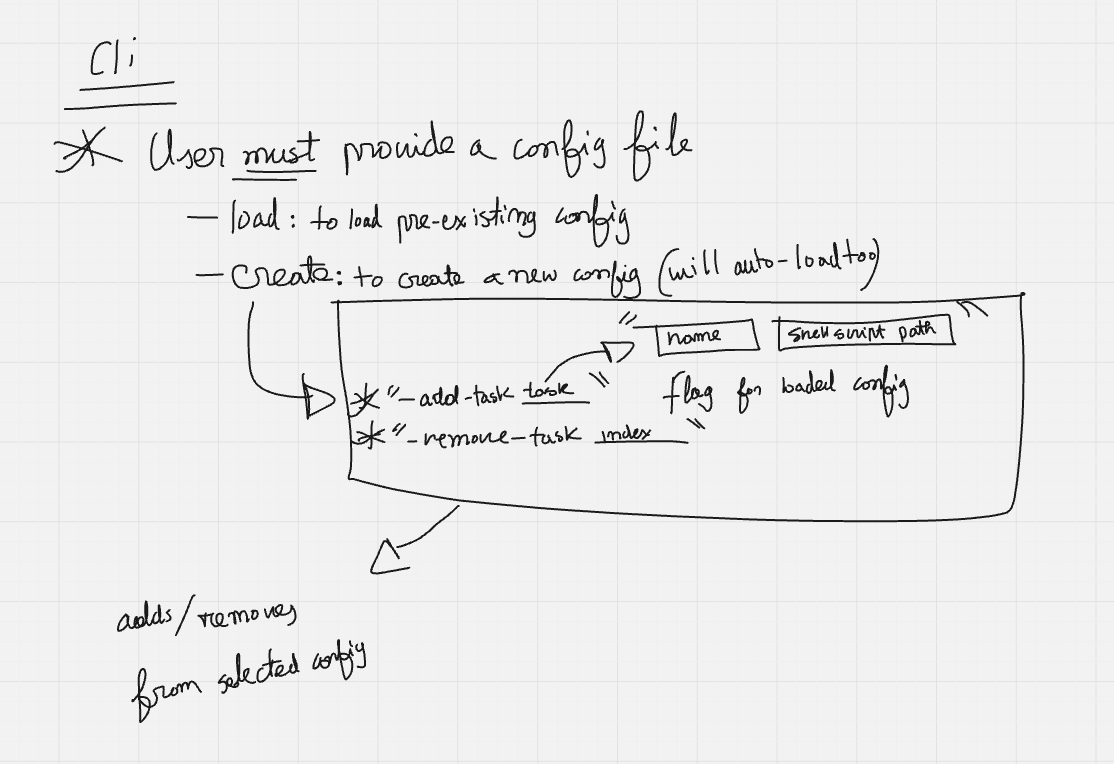 Cli
User must provide a config file
— load: to load pre-existing config
— create: to create a new config (will auto-load too)
" name shell script path "
"-add-task task "
flag for loaded config
"-remove-task index "
adds/removes
from selected config